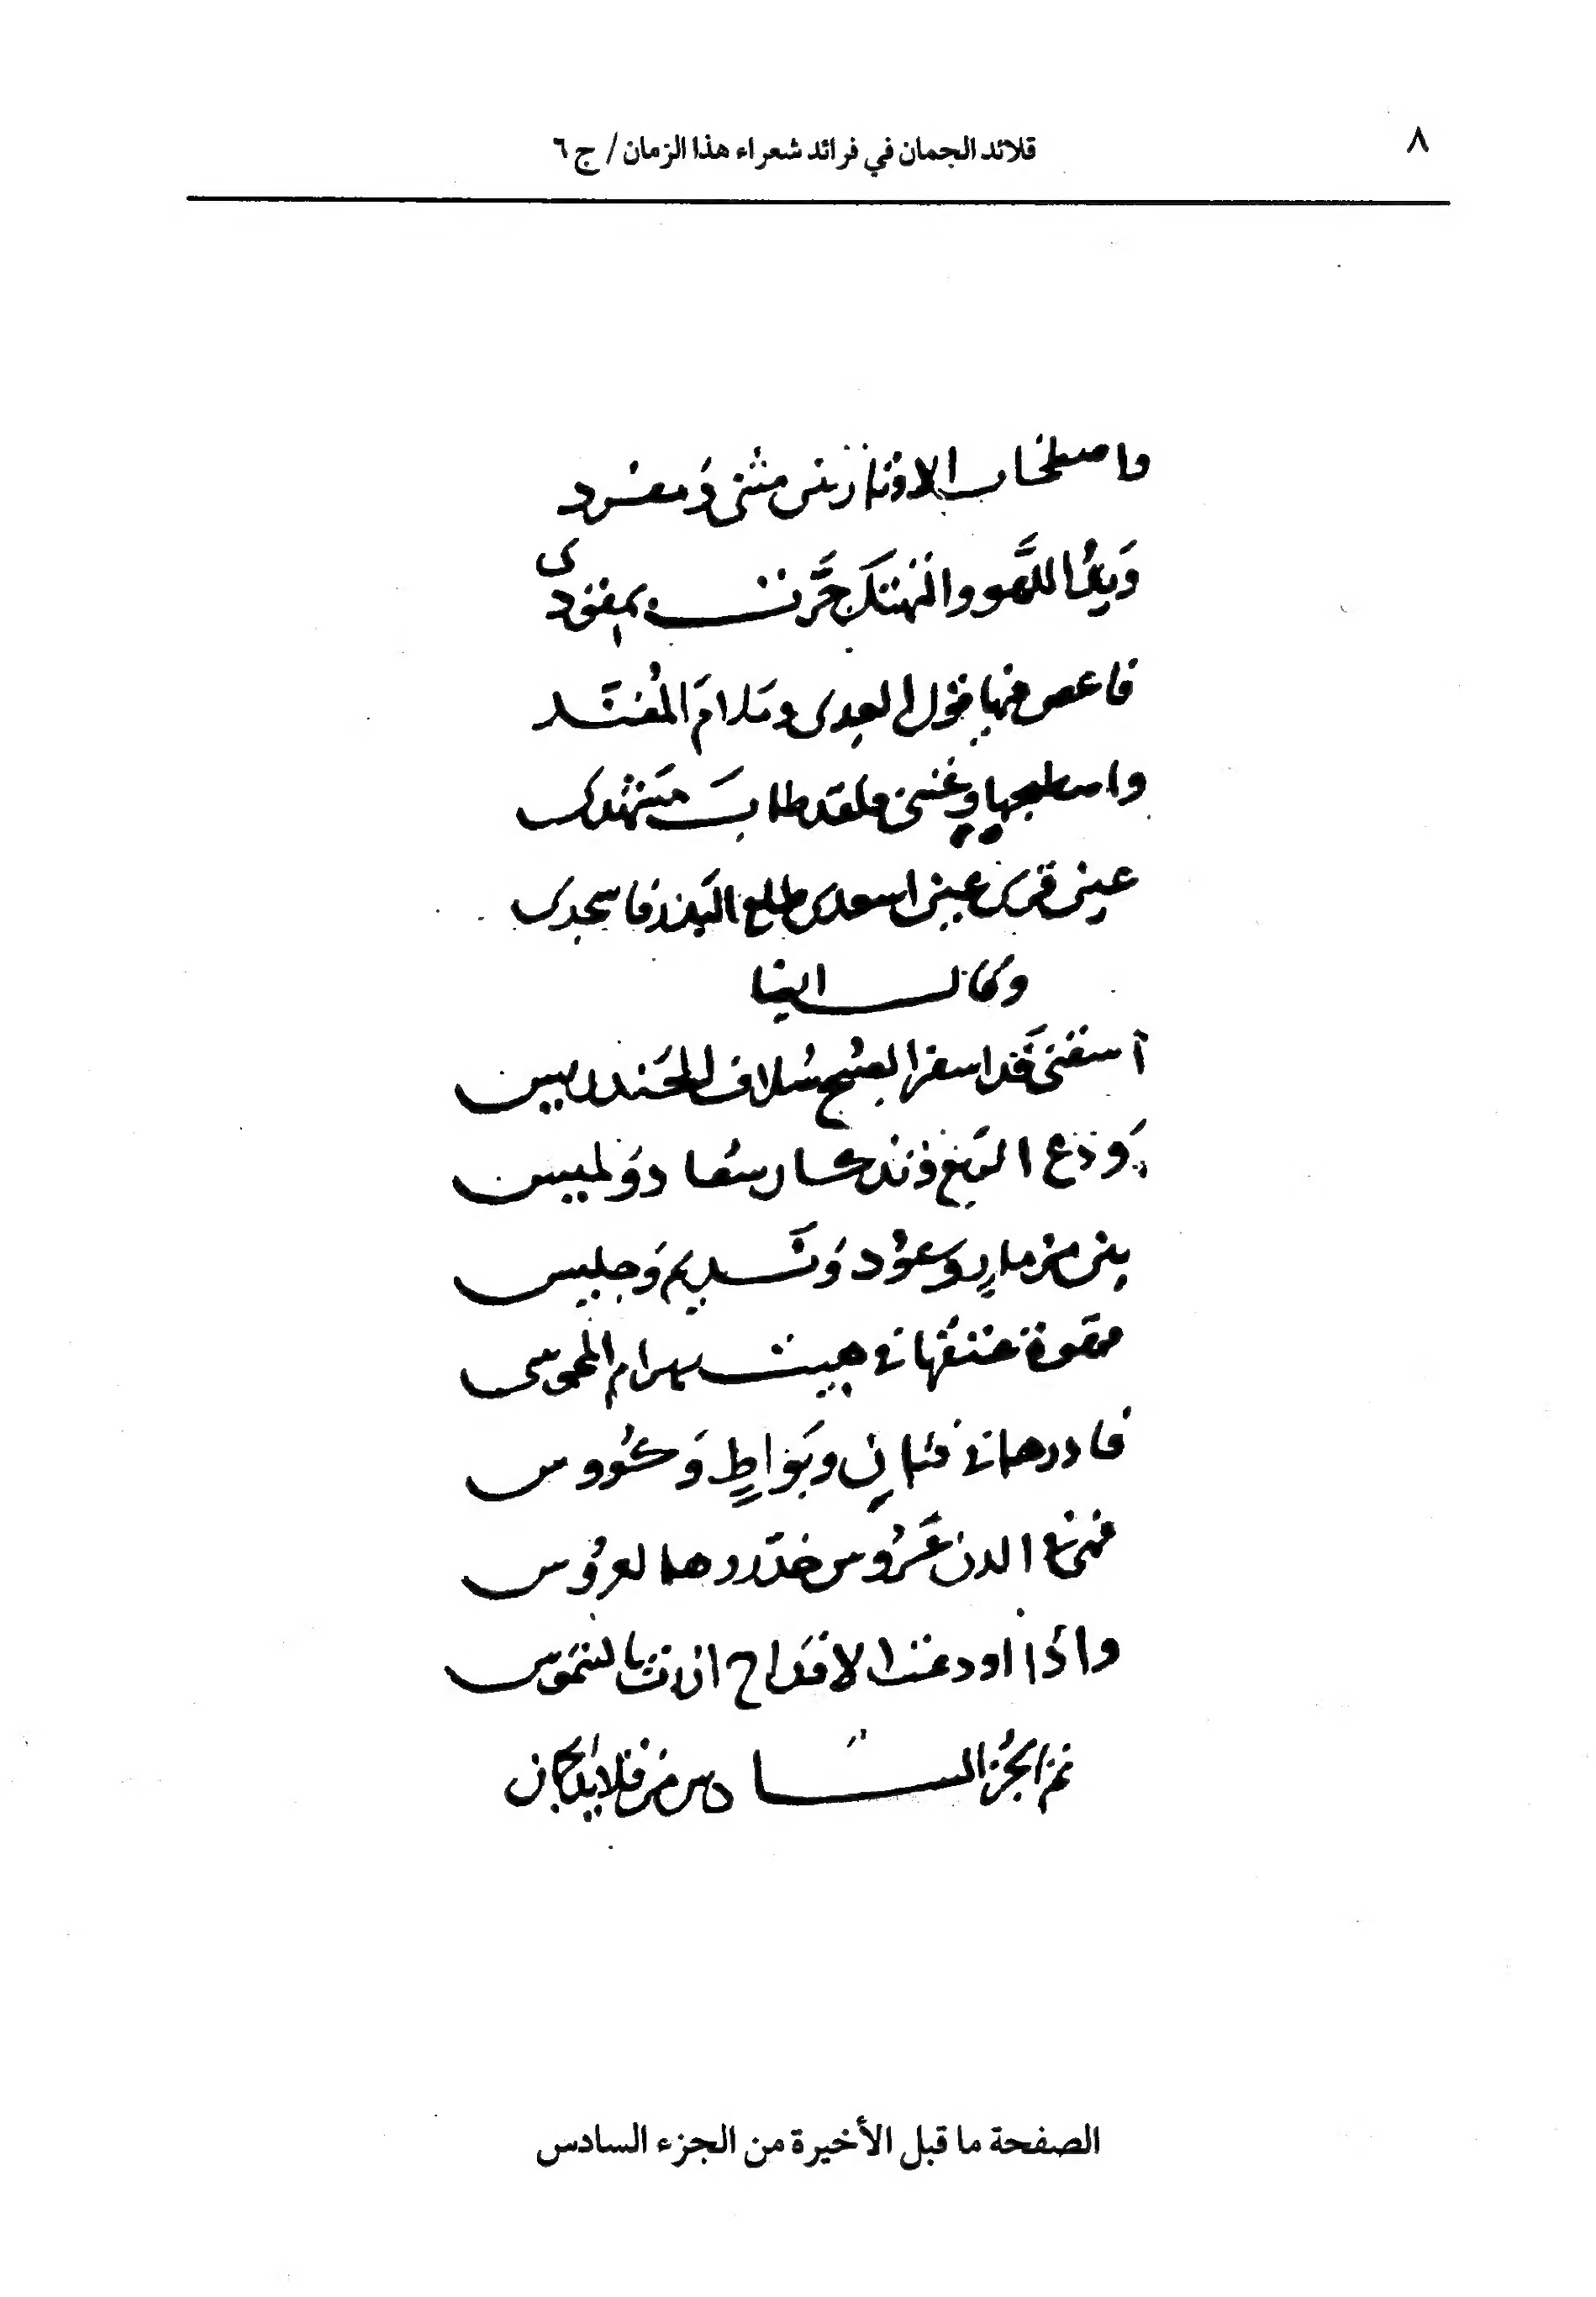 ٨
قلائد الجمان في فرائد شعراء هذا الزمان / ج ٦
واصطخاب الاوتار بين مثنى ومفرد
ويد اللهو والتهتك جرت بمقودى
فاعص فيها قول العدى وملام المفند
واصطبحها وغننى فلقد طاب مشهدى
عين قرى عين اسعدى طلع البدر فاسجدى
وقال ايضا
آسقنى قد اسفر الصبح سلاف الخندريس
ودع وتذكار سعاد ولميس
بين مزمار وعود ونديم وجليس
قهوة عتقها فى بيت بهرام المجوسى
فادرها فى قنانى وبواط وكووس
فهى فى الدن عروس خدرها لعروس
واذا اودعت الاقداح ازرت بالشموس
تم الجزء السادس من قلايد الجمان
الصفحة ما قبل الأخيرة من الجزء السادس